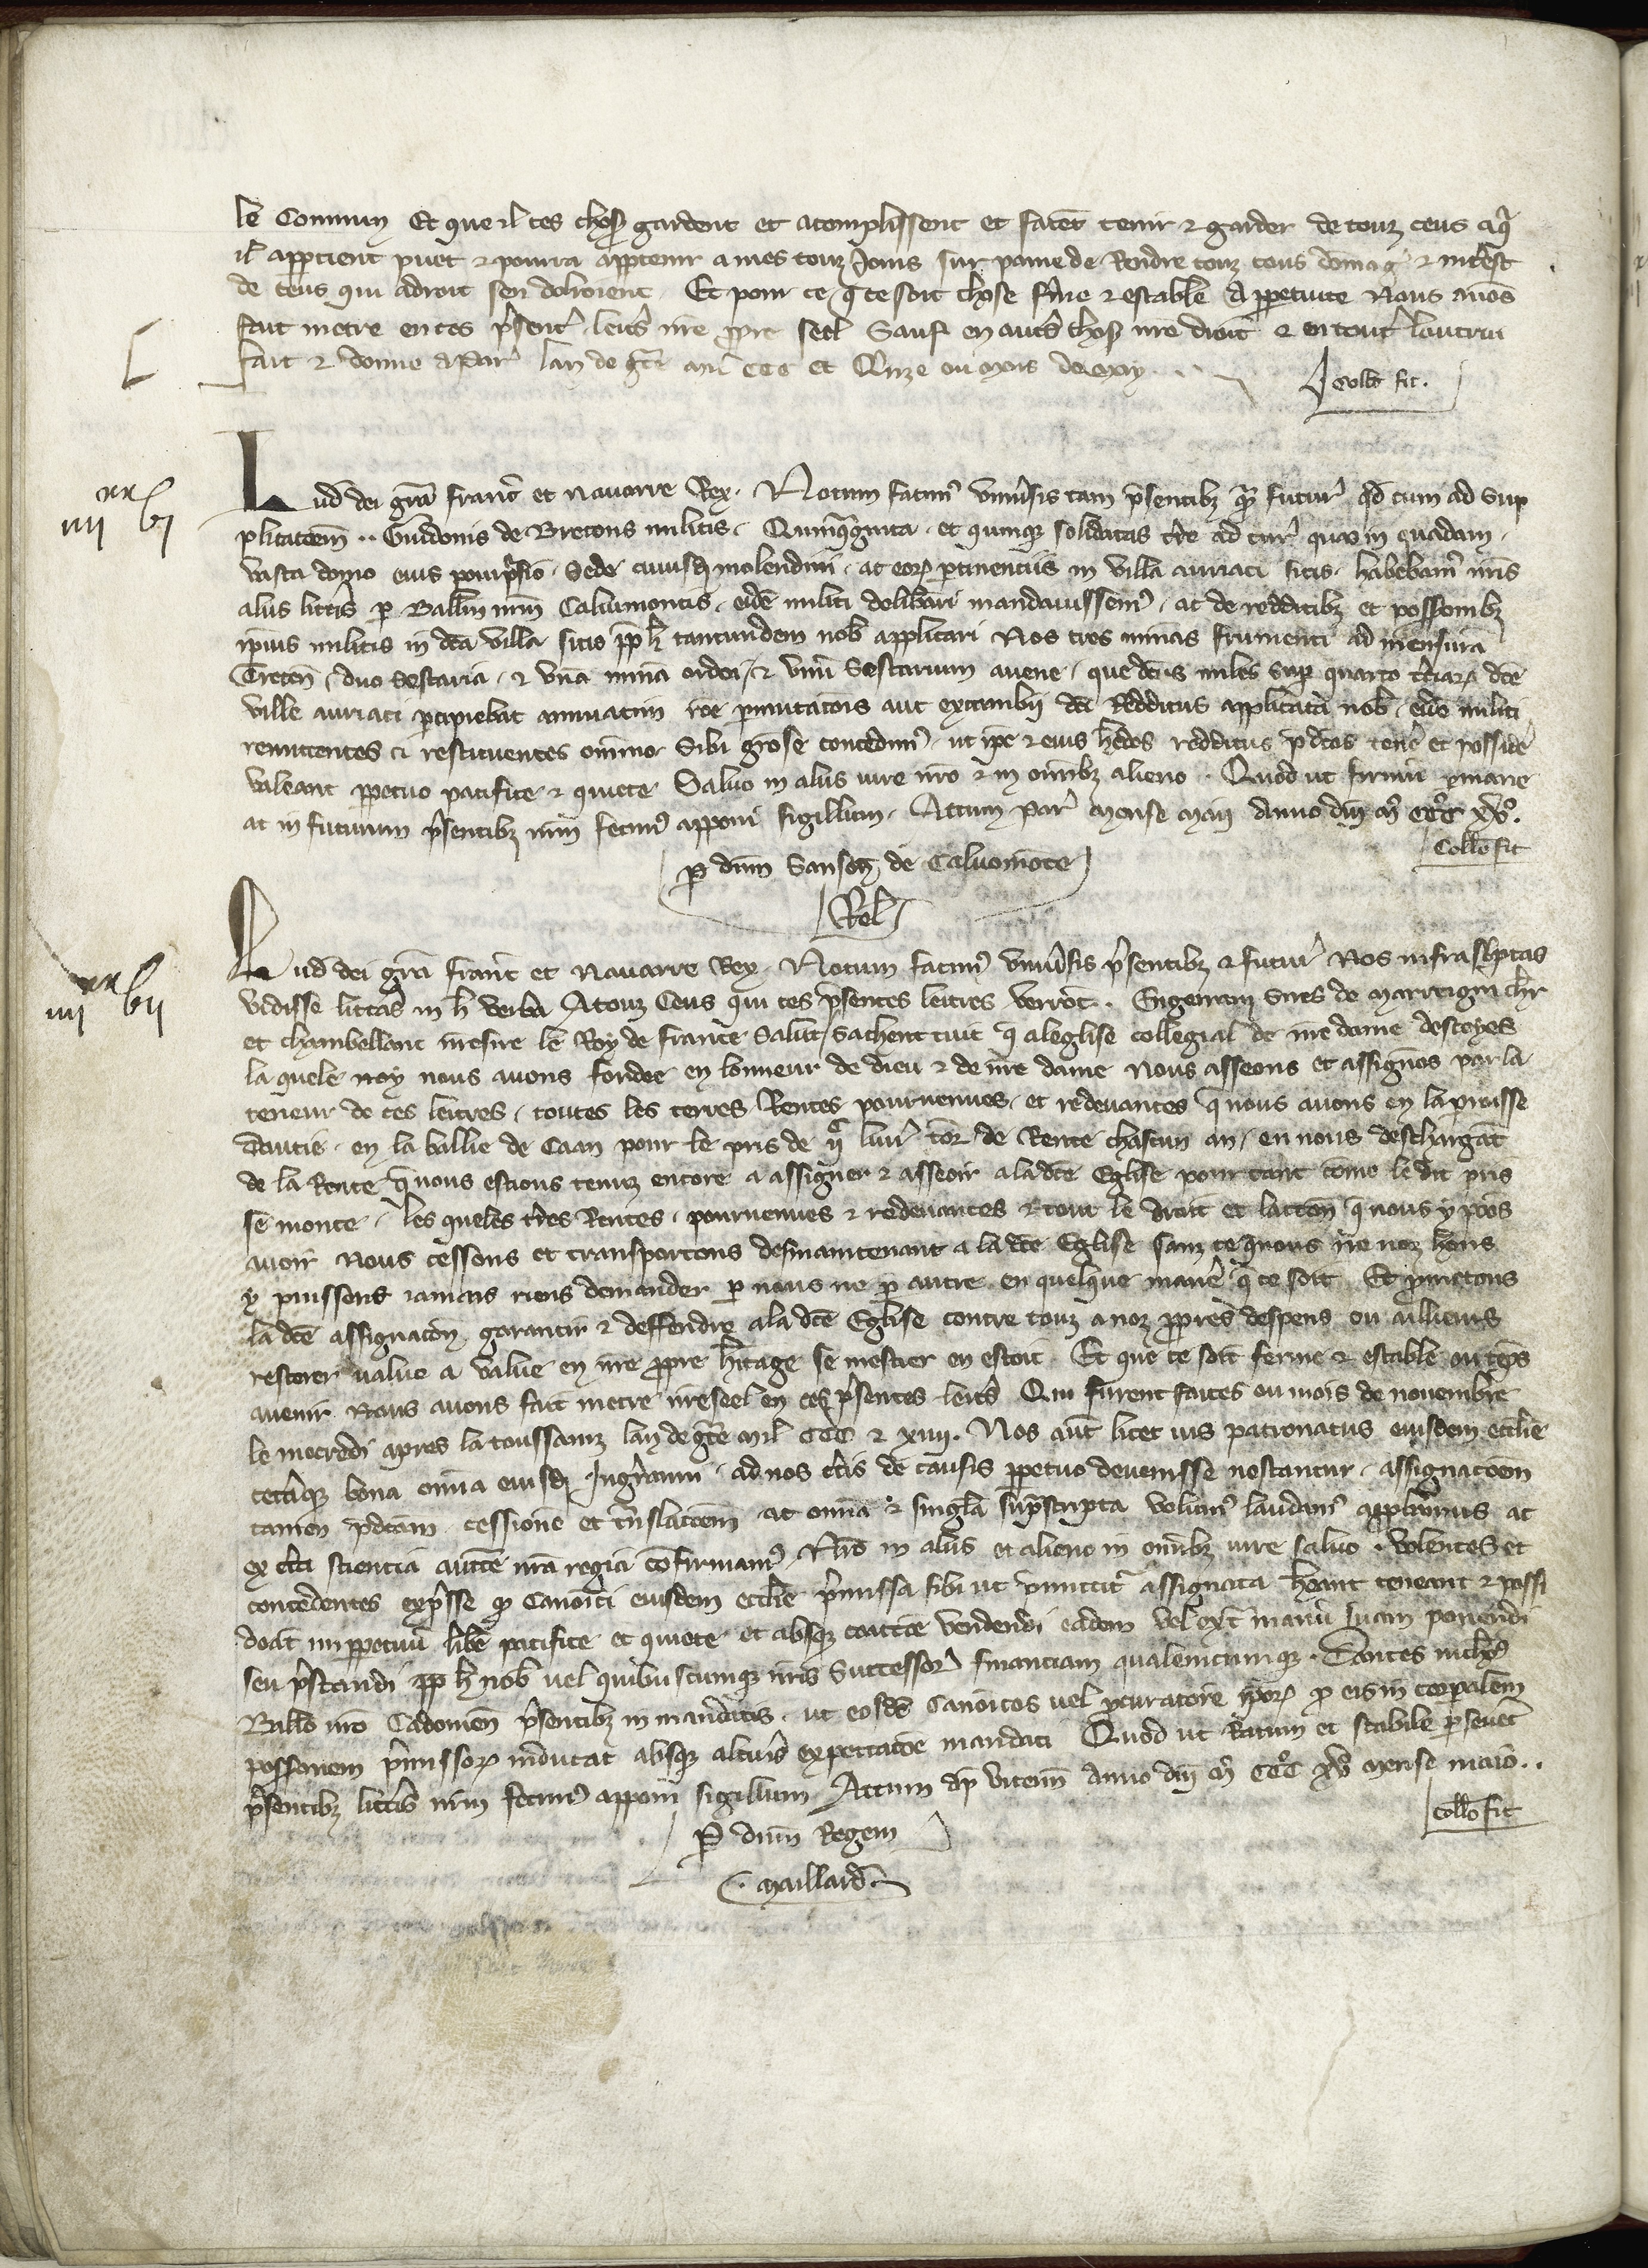 le Commun Et que il ces chos gardent et acomplissent et facet tenir & garder de touz ceus a q
il appertient puet & pourra appartenir a mes touz Jours sur paine de Rendre touz cous domag & interest
de ceus qui adroit sen dolroient. Et pour ce q ce soit chose ferme & estable A ppetuite Nous auos
fait metre en ces psent letrs nre ppre seel Sauf en autrs chos nre droit & en tout lautrui
fait & donne a Par lan de gre mil CCC et Qnze ou mois de may.
Collo fit.
iiii xx vi
Lud dei gra franc et Nauarre Rex. Notum facim uniusis tam psentibz qm futur qd cum ad sup
plicatoem .. Guidonis de Bretons militis. Quinqginta et quinque solidatas tre ad tur quas in quadam
vasta domo eius pourpsio. Sede cuiusd molendini. ac eorum ptinentiis in villa auriaci sitis. habebam nris
aliis littis p Ballm nrm Caluimontis, eide militi delibari mandauissem, ac de redditibz et possonibz
ipius militis in dca villa sitis pp h tantundem nob applicari Nos tres minas frumenti ad mensura
Trecen, duo sestaria, & una mina ordei, & unu Sestarium auene, que dcus miles sup quarto tciarum dce
ville auriaci pcipiebat annuatim roe pmutacois aut excambii dci Redditus applicati nob, eide militi
remittentes & restituentes omnino Sibi grose concedim, ut ipe & eius hedes redditus pdcos tene et posside
valeant ppetuo pacifice & quiete Saluo in aliis iure nro & in omibz alieno. Quod ut firmu pmane
at in futurum psentibz nrm fecim apponi sigillum. Actum Par mense maii Anno dni m CCC xv.
Collo fit
P dnm Sanson de Caluomote
Rel
iiii xx vii
Lud dei gra franc et Nauarre Rex. Notum facim uniusis psentibz & futur Nos infrascptas
vidisse litteras in h verba A touz Ceus qui ces psentes lettres verrot. Engerram Sires de Marreigni chr
et chambellanc nresire le Roy de france Salut, Sachent tuit q a leglise collegial de nre dame descoyes
la quele noy nous auons fondee en lonneur de dieu & de nre dame Nous asseons et assignos par la
teneur de ces lettres, toutes les terres, Rentes pourvenues, et redevances q nous auons en la paroisse
dautie. en la ballie de Caan pour le pris de liur tor de Rente chascun an, en nous deschargat
de la Rente q nous estions tenuz encore a assigner & asseoir a la dce Eglise pour tant come le dit pris
se monte. Les queles tres Rentes, pourvenues & redevances & tout le droit et laccon q nous y pos
auoir Nous cessons et transportons desmaintenant a la dce Eglise sanz ce q nous ne noz hoirs
y puissons iamais riens demander p nous ne p autre en quelque manie q ce soit Et pmetons
la dce assignacon garantir & deffendre a la dce Eglise contre touz a noz ppres despens ou ailleurs
restorer value a value en nre ppre hitage se mestier en estoit Et que ce soit ferme & estable ou teps
auenir Nous auons fait metre nre seel en ces psentes letrs Qui furent faites ou mois de nouembre
le mecredi apres la toussainz lan de gre mil CCC & xiiii. Nos aut licet ius patronatus eiusdem ecclie
ceteraque bona omia eiusd Ingrami, ad nos ctis de causis ppetuo deuenisse noscantur, assignacoem
tamen pdcam cessione et trslacoem ac omia & singla suprascripta volum laudam approbamus ac
ex cta scientia auctte nra regia cofirmam, Nro in aliis et alieno in omibz iure saluo. Volentes et
concedentes expsse q Canoici eiusdem ecclie pmissa sibi ut pmittit assignata heant teneant & possi
deat imppetuu libe pacifice et quiete et absq coactoe vendendi eadem vel ext manu suam ponendi
seu pstandi pp h nob vel quibuscumque nris Successor financiam qualemcumque. Dantes nichs
Ballo nro Cadomen psentibz in mandatis. ut eosde Canoicos vel pcuratore ipor p eis in corpalem
possonem pmissorum inducat absq altius expectacoe mandati Quod ut Ratum et stabile pseuet
psentibz littis nrm fecim apponi sigillum Actum ap Vicenn Anno dni m CCC xv mense maio..
Collo fit
P dnm Regem
Maillard.